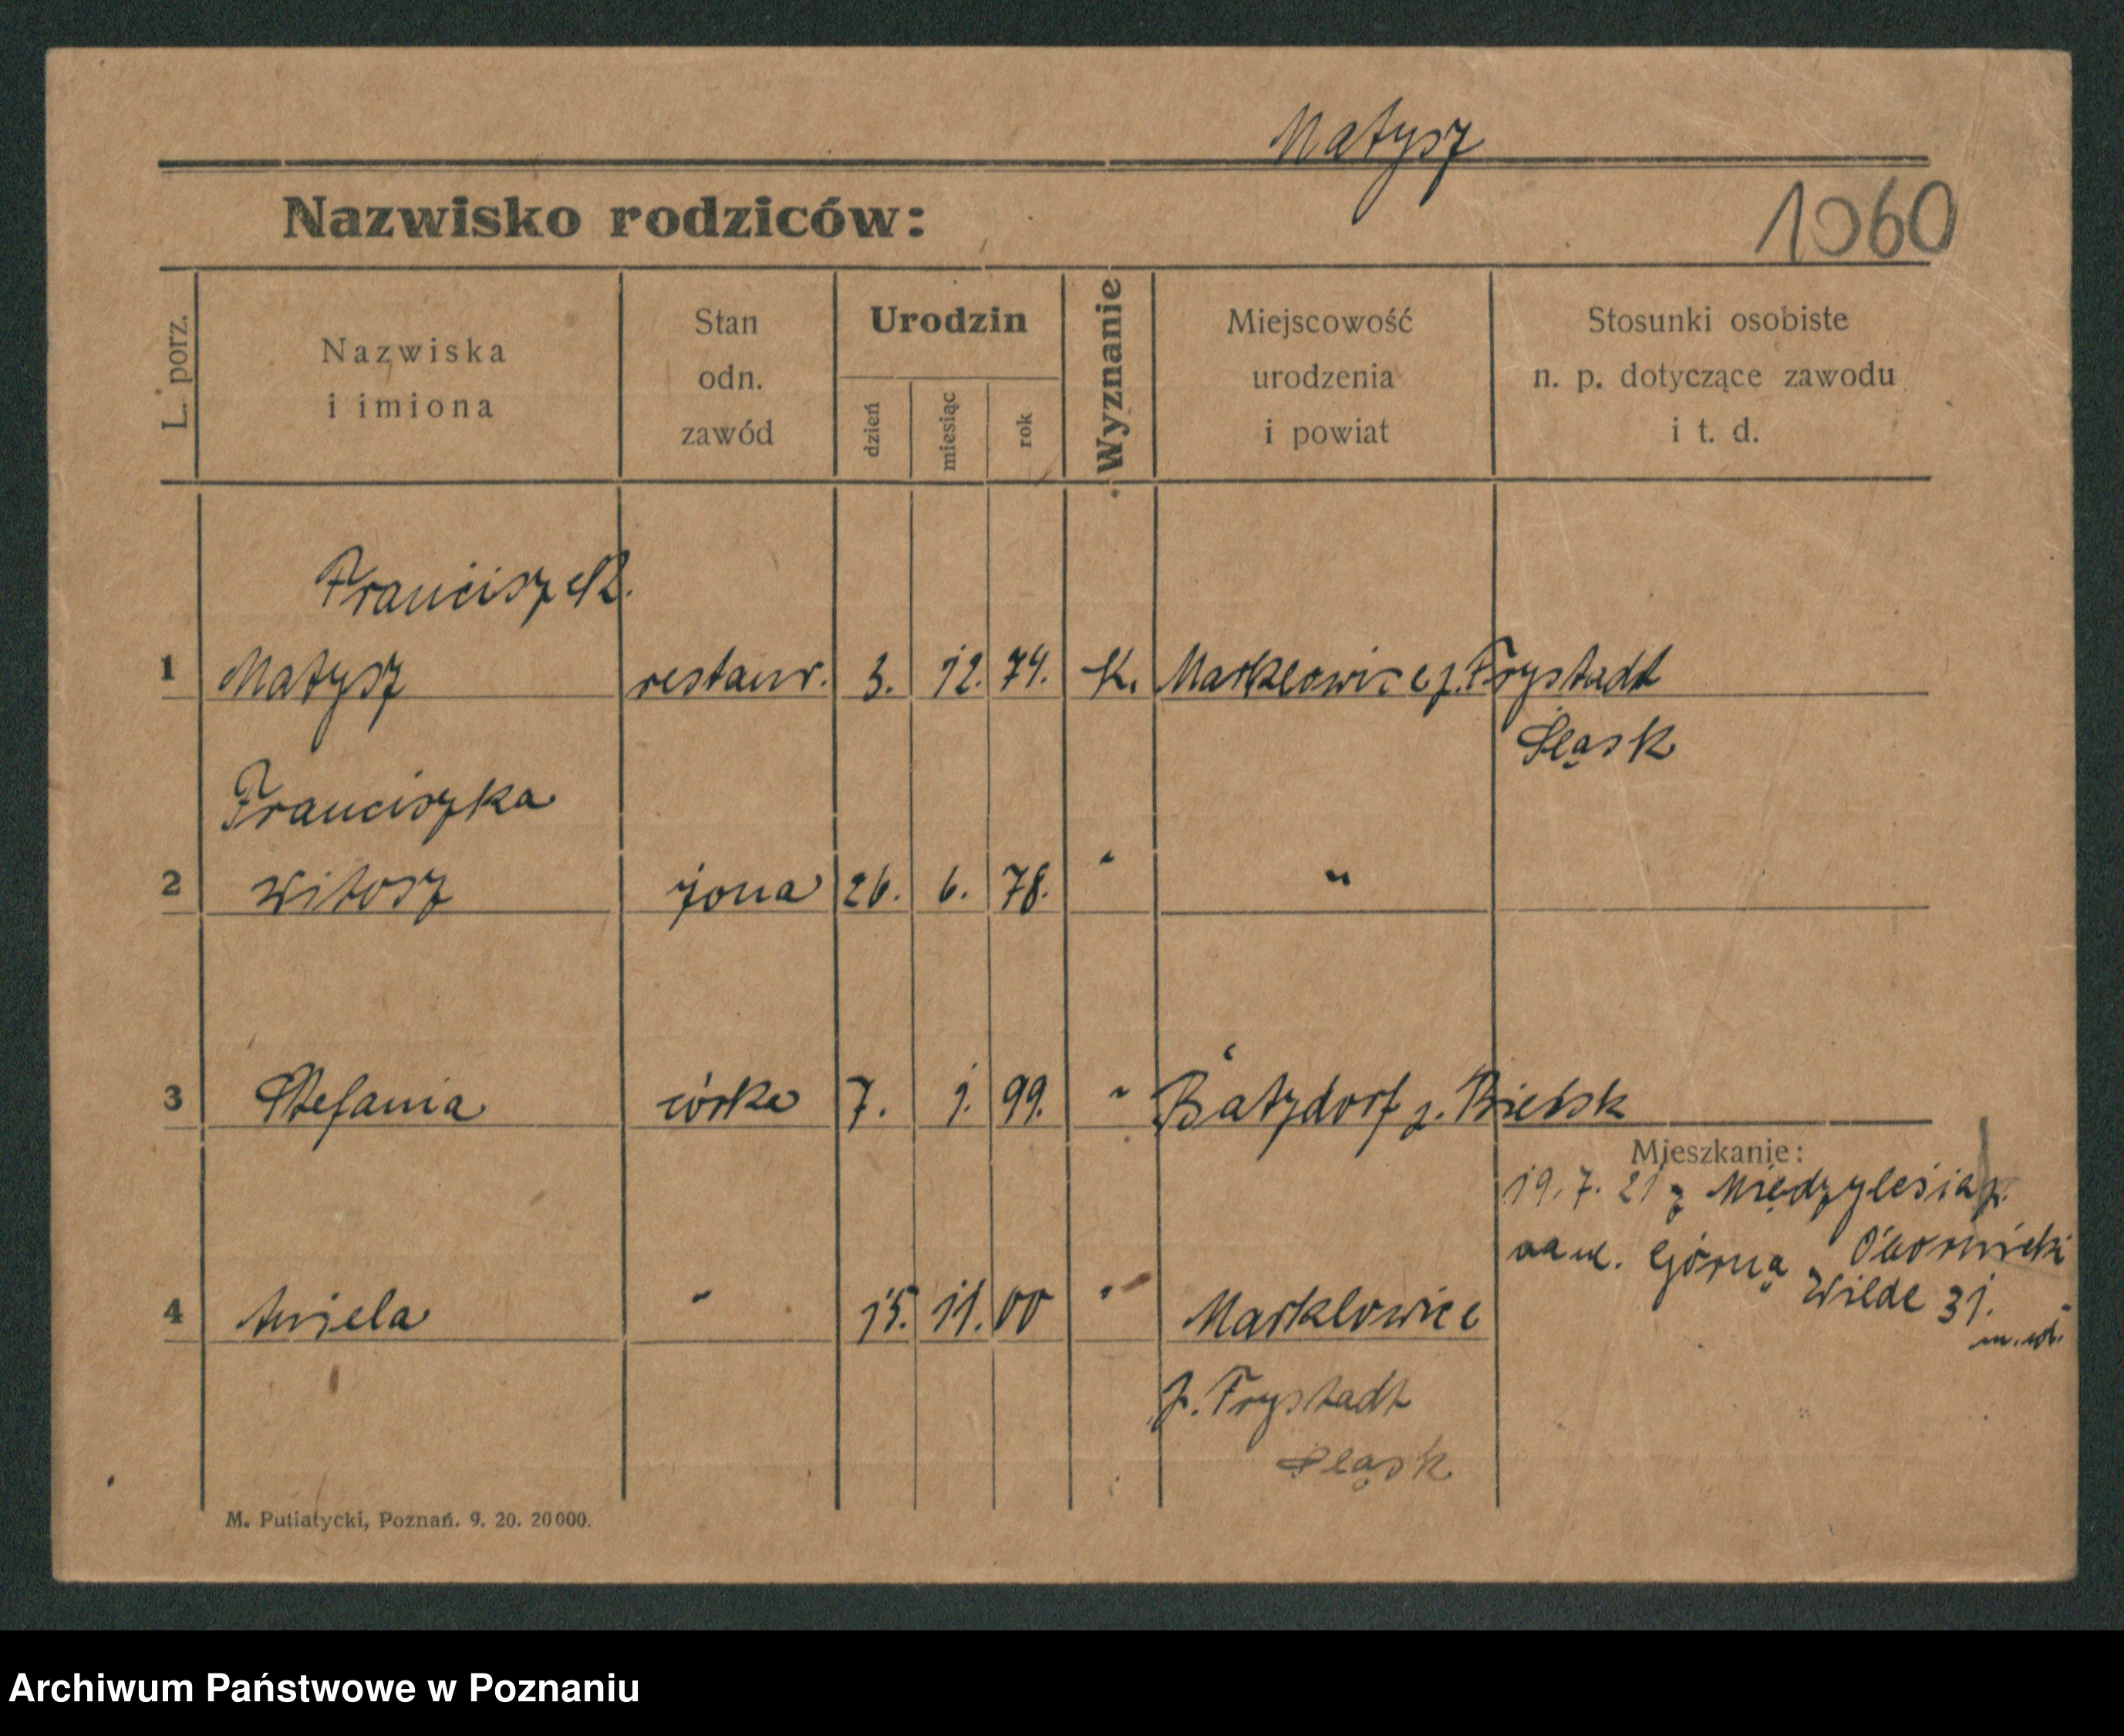 Matysz
Nazwisko rodziców:
1060
L. porz.
Nazwiska
i imiona
Stan
odn.
zawód
Urodzin
dzień
miesiąc
rok
Wyznanie
Miejscowość
urodzenia
i powiat
Stosunki osobiste
n. p. dotyczące zawodu
i t. d.
Franciszek.
1 Matysz restaur. 3. 12. 74. K. Marklowice p. Frystadt
Śląsk
Franciszka
2 Witosz żona 26. 6. 78. " "
3 Stefania córka 7. 1. 99. " Batzdorf p. Bielsk
Mieszkanie:
19. 7. 21 z Międzylesia p.
Obornicki
na ul. Górna Wilde 31.
4 Aniela " 15. 11. 00 " Marklowice
p. Frystadt
Śląsk
M. Putiatycki, Poznań. 9. 20. 20000.
Archiwum Państwowe w Poznaniu